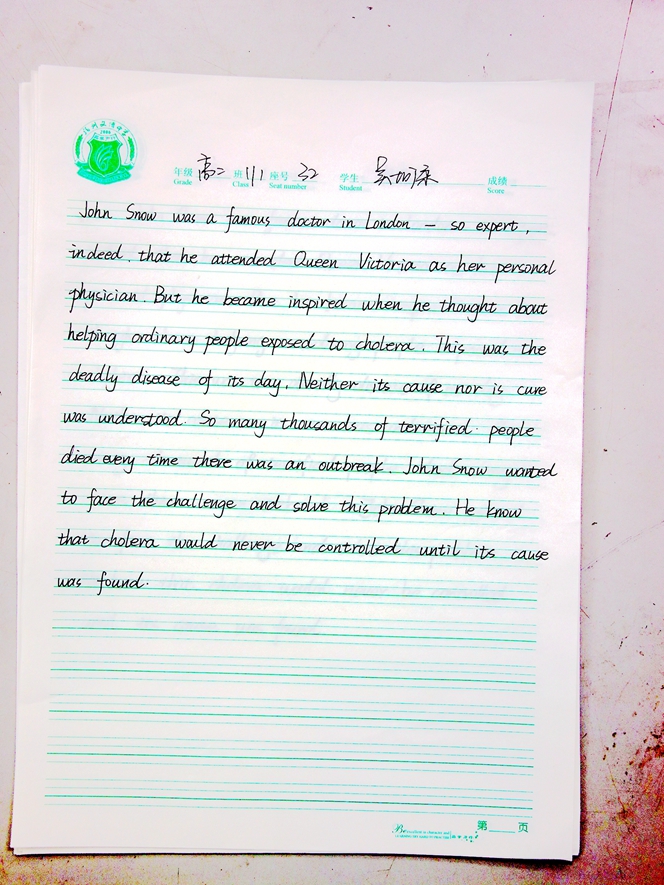 年级 高二 班 11 座号 32 学生 成绩
Grade Class Seat number Student Score
John Snow was a famous doctor in London – so expert,
indeed, that he attended Queen Victoria as her personal
physician. But he became inspired when he thought about
helping ordinary people exposed to cholera. This was the
deadly disease of its day. Neither its cause nor is cure
was understood. So many thousands of terrified people
died every time there was an outbreak. John Snow wanted
to face the challenge and solve this problem. He know
that cholera would never be controlled until its cause
was found.
第 页